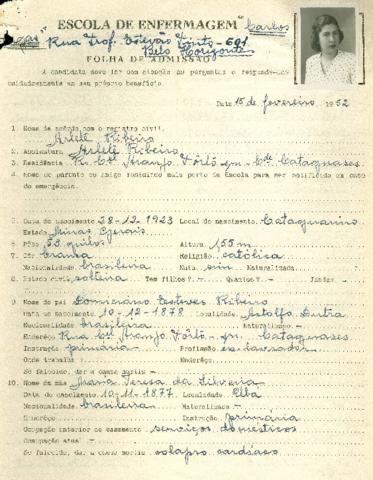 ESCOLA DE ENFERMAGEM Carlos
Rua Prof. Estevão Pinto - 601
Belo Horizonte
FOLHA DE ADMISSÃO
A candidata deve ler com atenção as perguntas e responder
cuidadosamente em seu próprio benefício.
Data 15 de fevereiro 1952
1. Nome de acôrdo com o registro civil.
Arlete Ribeiro
2. Assinatura Arlete Ribeiro
3. Residência R. Cel. Araujo Pôrto Cataguases.
4. Nome de parente ou amigo residitos mais perto da Escola para ser notificado em caso
de emergência.
5. Data do nascimento 28-12-1923 Local do nascimento Cataguarino
Estado Minas Gerais
6. Pêso 53 quilos Altura 1,55 m.
7. Côr branca Religião católica
Nacionalidade brasileira Nata sim Naturalizada -
8. Estado civil solteira Tem filhos ? - Quantos ? - Idades. -
9. Nome do pai Ribeiro
Data do nascimento 10-12-1878 Localidade Astolfo Dutra
Nacionalidade brasileira Naturalizado -
Endereço Rua Cel. Araujo Pôrto Cataguases
Instrução primária Profissão ex-lavrador
Onde trabalha Endereço.
Se falecido, dar a causa mortis -
10. Nome da mãe Maria Teresa da Silveira
Data do nascimento 10-11-1877 Localidade Ubá
Nacionalidade brasileira Naturalizada -
Endereço - Instrução primária
Ocupação anterior ao casamento serviços domésticos
Ocupação atual -
Se falecida, dar a causa mortis colapso cardíaco